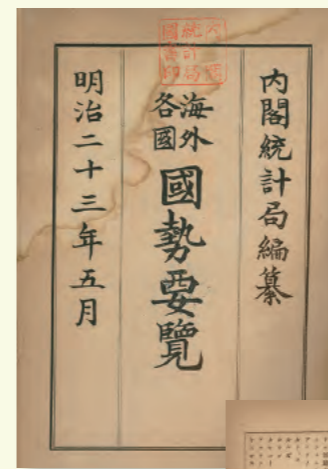 内閣統計局編纂
海外
各國
國勢要覽
明治二十三年五月